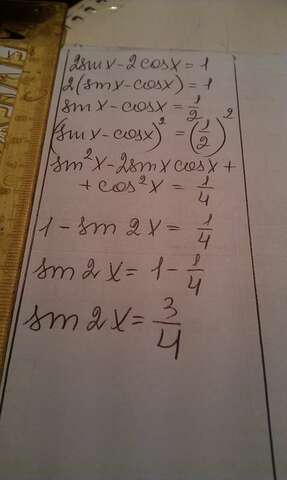 2sinx-2cosx=1
2(sinx-cosx)=1
sinx-cosx=1/2
(sinx-cosx)²=(1/2)²
sin²x-2sinxcosx+
+cos²x=1/4
1-sin2x=1/4
sin2x=1-1/4
sin2x=3/4